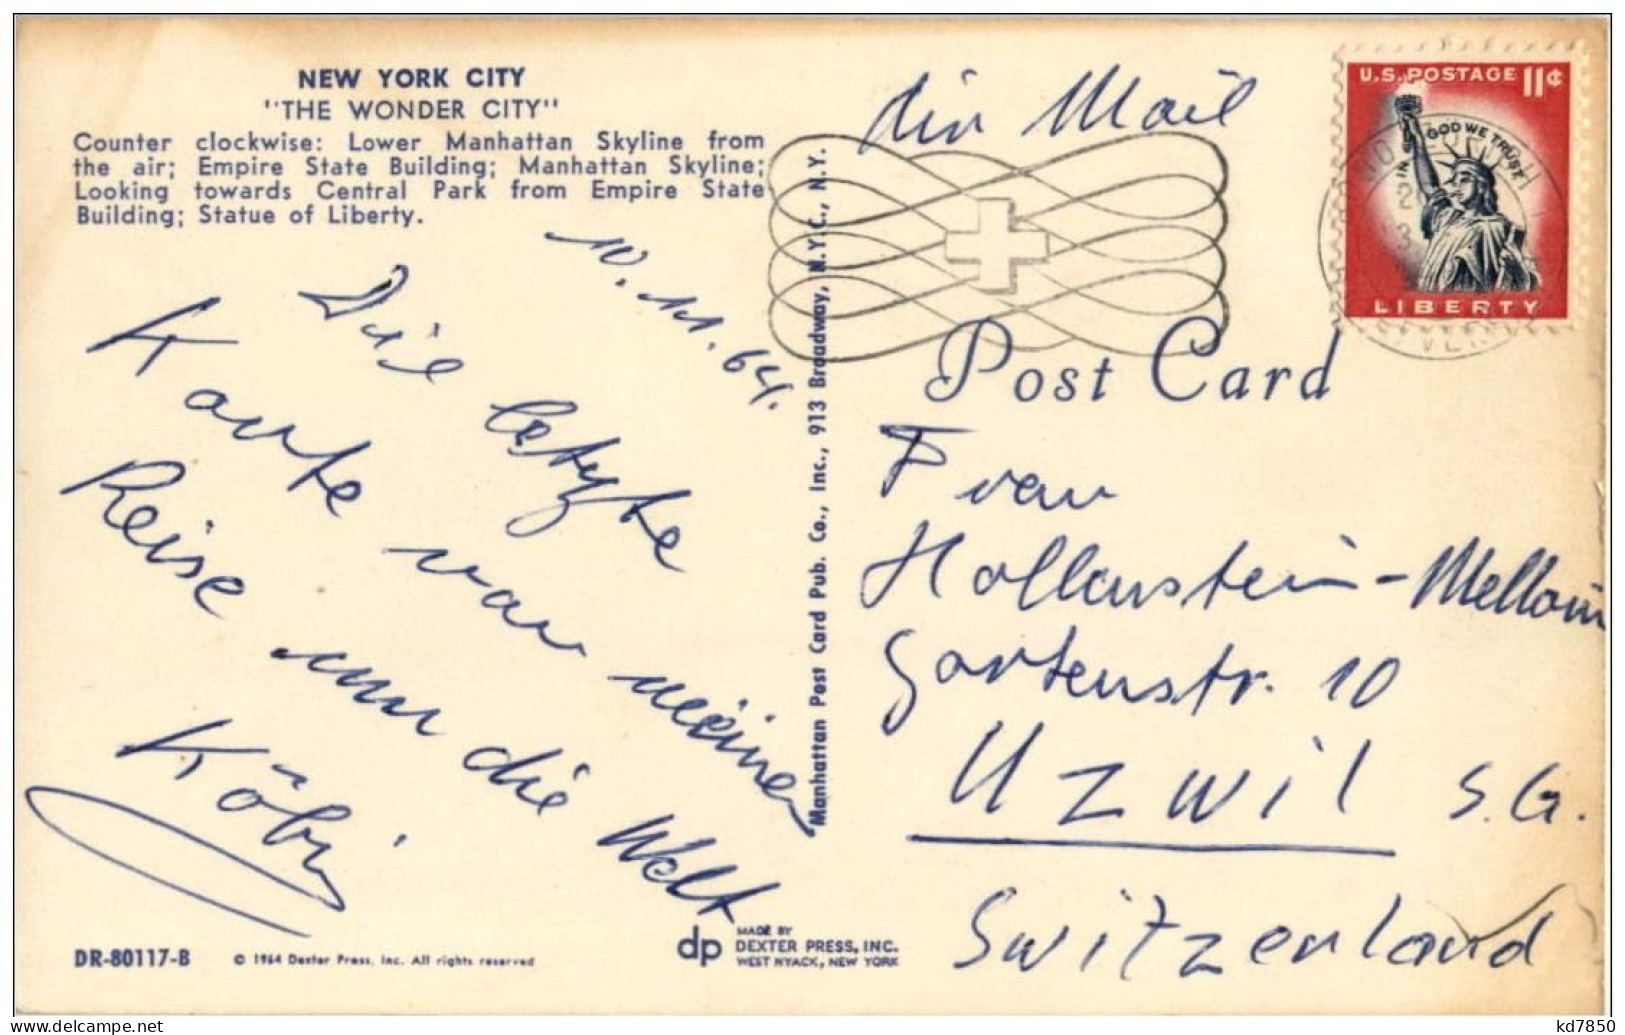 NEW YORK CITY
"THE WONDER CITY"
Counter clockwise: Lower Manhattan Skyline from
the air; Empire State Building; Manhattan Skyline;
Looking towards Central Park from Empire State
Building; Statue of Liberty.
10.11.64.
Die letzte
Karte von meiner
Reise um die Welt
Köbi.
DR-80117-B
© 1964 Dexter Press, Inc. All rights reserved
dp
MADE BY
DEXTER PRESS, INC.
WEST NYACK, NEW YORK
Manhattan Post Card Pub. Co., Inc., 913 Broadway, N.Y.C., N.Y.
Air Mail
U.S. POSTAGE 11¢
IN GOD WE TRUST
LIBERTY
Post Card
Frau
Hollenstein-
Gartenstr. 10
Uzwil S.G.
Switzerland
kd7850